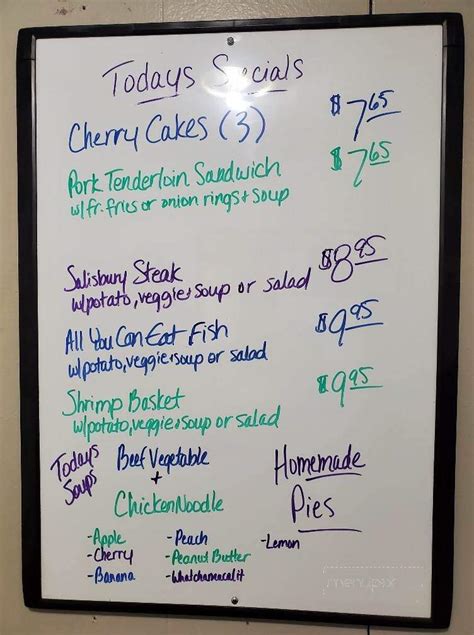 Todays Specials
Cherry Cakes (3) $7.65
Pork Tenderloin Sandwich $7.65
w/ fr. fries or onion rings + soup
Salisbury Steak $8.95
w/potato, veggie + soup or salad
All You Can Eat Fish $9.95
w/potato, veggie + soup or salad
Shrimp Basket $9.95
w/potato, veggie + soup or salad
Todays Soups
Beef Vegetable
+
Chicken Noodle
Homemade
Pies
-Apple -Peach -Lemon
-Cherry -Peanut Butter
-Banana -Whatchamacalit
menupix